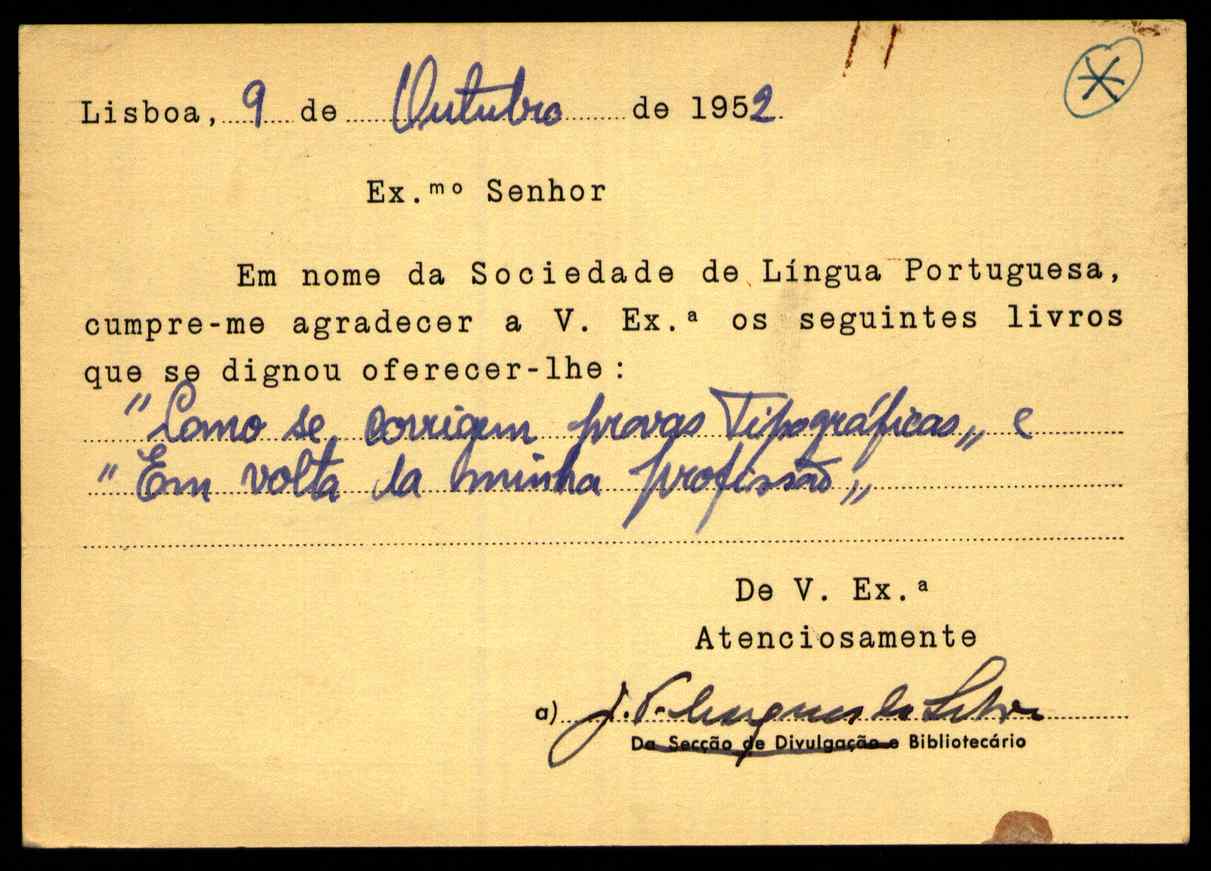 Lisboa, 9 de Outubro de 1952.
Ex.mo Senhor
Em nome da Sociedade de Língua Portuguesa,
cumpre-me agradecer a V. Ex.ª os seguintes livros
que se dignou oferecer-lhe:
"Como se corrigem provas Tipográficas„ e
"Em volta da minha profissão„
De V. Ex.ª
Atenciosamente
a) J. P. Marques da Silva
Da Secção de Divulgação e Bibliotecário